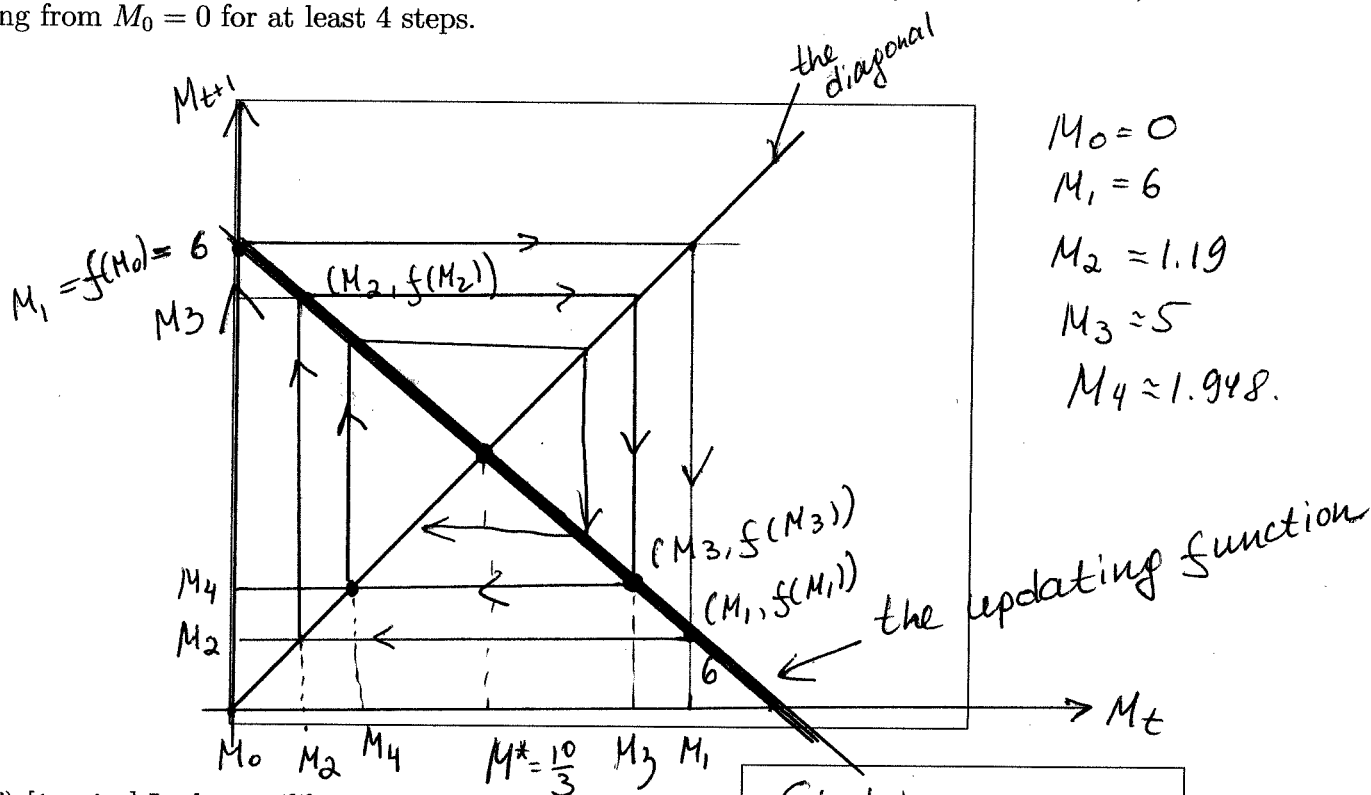 ng from M₀ = 0 for at least 4 steps.
the
diagonal
Mt+1
M₀ = 0
M₁ = 6
M₂ ≈ 1.19
M₃ ≈ 5
M₄ ≈ 1.948.
M₁ = f(M₀) = 6
(M₂, f(M₂))
M3
(M3, f(M3))
(M₁, f(M₁))
the updating function
M₄
M₂
6
Mt
M₀
M₂
M₄
M* = 10/3
M₃
M₁